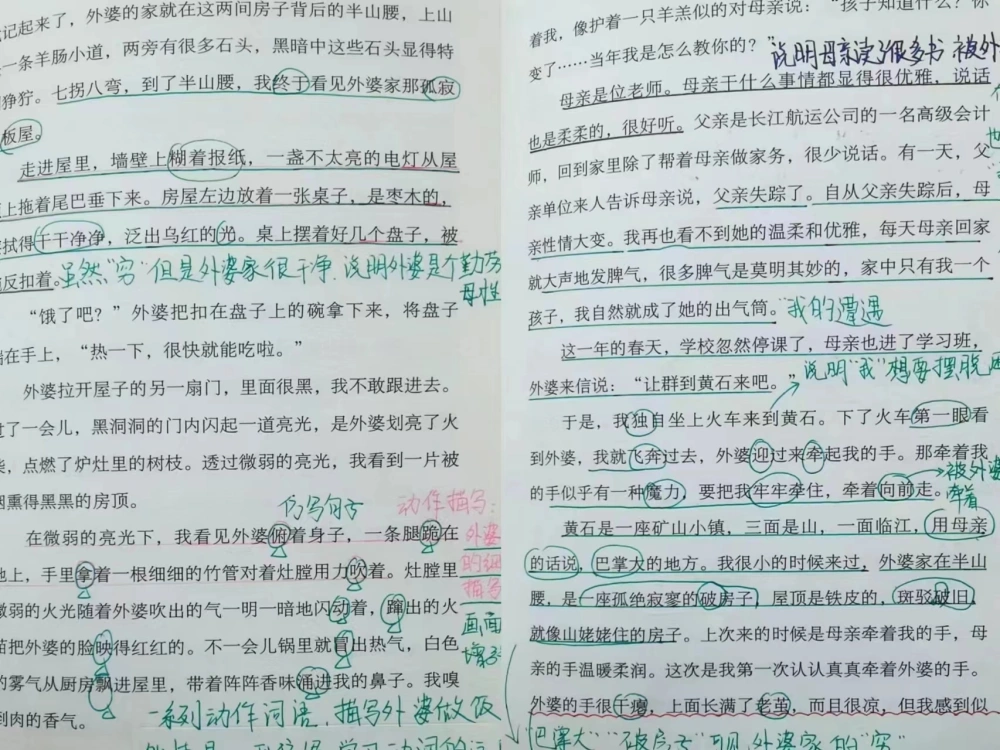 记起来了，外婆的家就在这两间房子背后的半山腰，上山
一条羊肠小道，两旁有很多石头，黑暗中这些石头显得特
狰狞。七拐八弯，到了半山腰，我终于看见外婆家那孤寂
板屋。
走进屋里，墙壁上糊着报纸，一盏不太亮的电灯从屋
上拖着尾巴垂下来。房屋左边放着一张桌子，是枣木的，
拭得干干净净，泛出乌红的光。桌上摆着好几个盘子，被
反扣着。
虽然"穷"但是外婆家很干净，说明外婆是个勤劳
母性
“饿了吧？”外婆把扣在盘子上的碗拿下来，将盘子
在手上，“热一下，很快就能吃啦。”
外婆拉开屋子的另一扇门，里面很黑，我不敢跟进去。
过了一会儿，黑洞洞的门内闪起一道亮光，是外婆划亮了火
柴，点燃了炉灶里的树枝。透过微弱的亮光，我看到一片被
烟熏得黑黑的房顶。
仿写句子
在微弱的亮光下，我看见外婆俯着身子，一条腿跪在
地上，手里拿着一根细细的竹管对着灶膛用力吹着。灶膛里
微弱的火光随着外婆吹出的气一明一暗地闪动着，蹿出的火
苗把外婆的脸映得红红的。不一会儿锅里就冒出热气，白色
的雾气从厨房飘进屋里，带着阵阵香味涌进我的鼻子。我嗅
到肉的香气。
动作描写：
外婆
的细
描写
画面
增强
一系列动作词语，描写外婆做饭
着我，像护着一只羊羔似的对母亲说：“孩子知道什么？你
变了……当年我是怎么教你的？”
说明母亲读了很多书 被外
母亲是位老师。母亲干什么事情都显得很优雅，说话
也是柔柔的，很好听。父亲是长江航运公司的一名高级会计
师，回到家里除了帮着母亲做家务，很少说话。有一天，父
亲单位来人告诉母亲说，父亲失踪了。自从父亲失踪后，母
亲性情大变。我再也看不到她的温柔和优雅，每天母亲回家
就大声地发脾气，很多脾气是莫明其妙的，家中只有我一个
孩子，我自然就成了她的出气筒。
"我"的遭遇
这一年的春天，学校忽然停课了，母亲也进了学习班，
外婆来信说：“让群到黄石来吧。”
说明"我"想要摆脱
于是，我独自坐上火车来到黄石。下了火车第一眼看
到外婆，我就飞奔过去，外婆迎过来牵起我的手。那牵着我
的手似乎有一种魔力，要把我牢牢牵住，牵着向前走。
被外婆
牵着
黄石是一座矿山小镇，三面是山，一面临江，用母亲
的话说，巴掌大的地方。我很小的时候来过，外婆家在半山
腰，是一座孤绝寂寥的破房子，屋顶是铁皮的，斑驳破旧，
就像山姥姥住的房子。上次来的时候是母亲牵着我的手，母
亲的手温暖柔润。这次是我第一次认认真真牵着外婆的手。
外婆的手很干瘪，上面长满了老茧，而且很凉，但我感到似
"巴掌大" "破房子"可见外婆家的"穷"